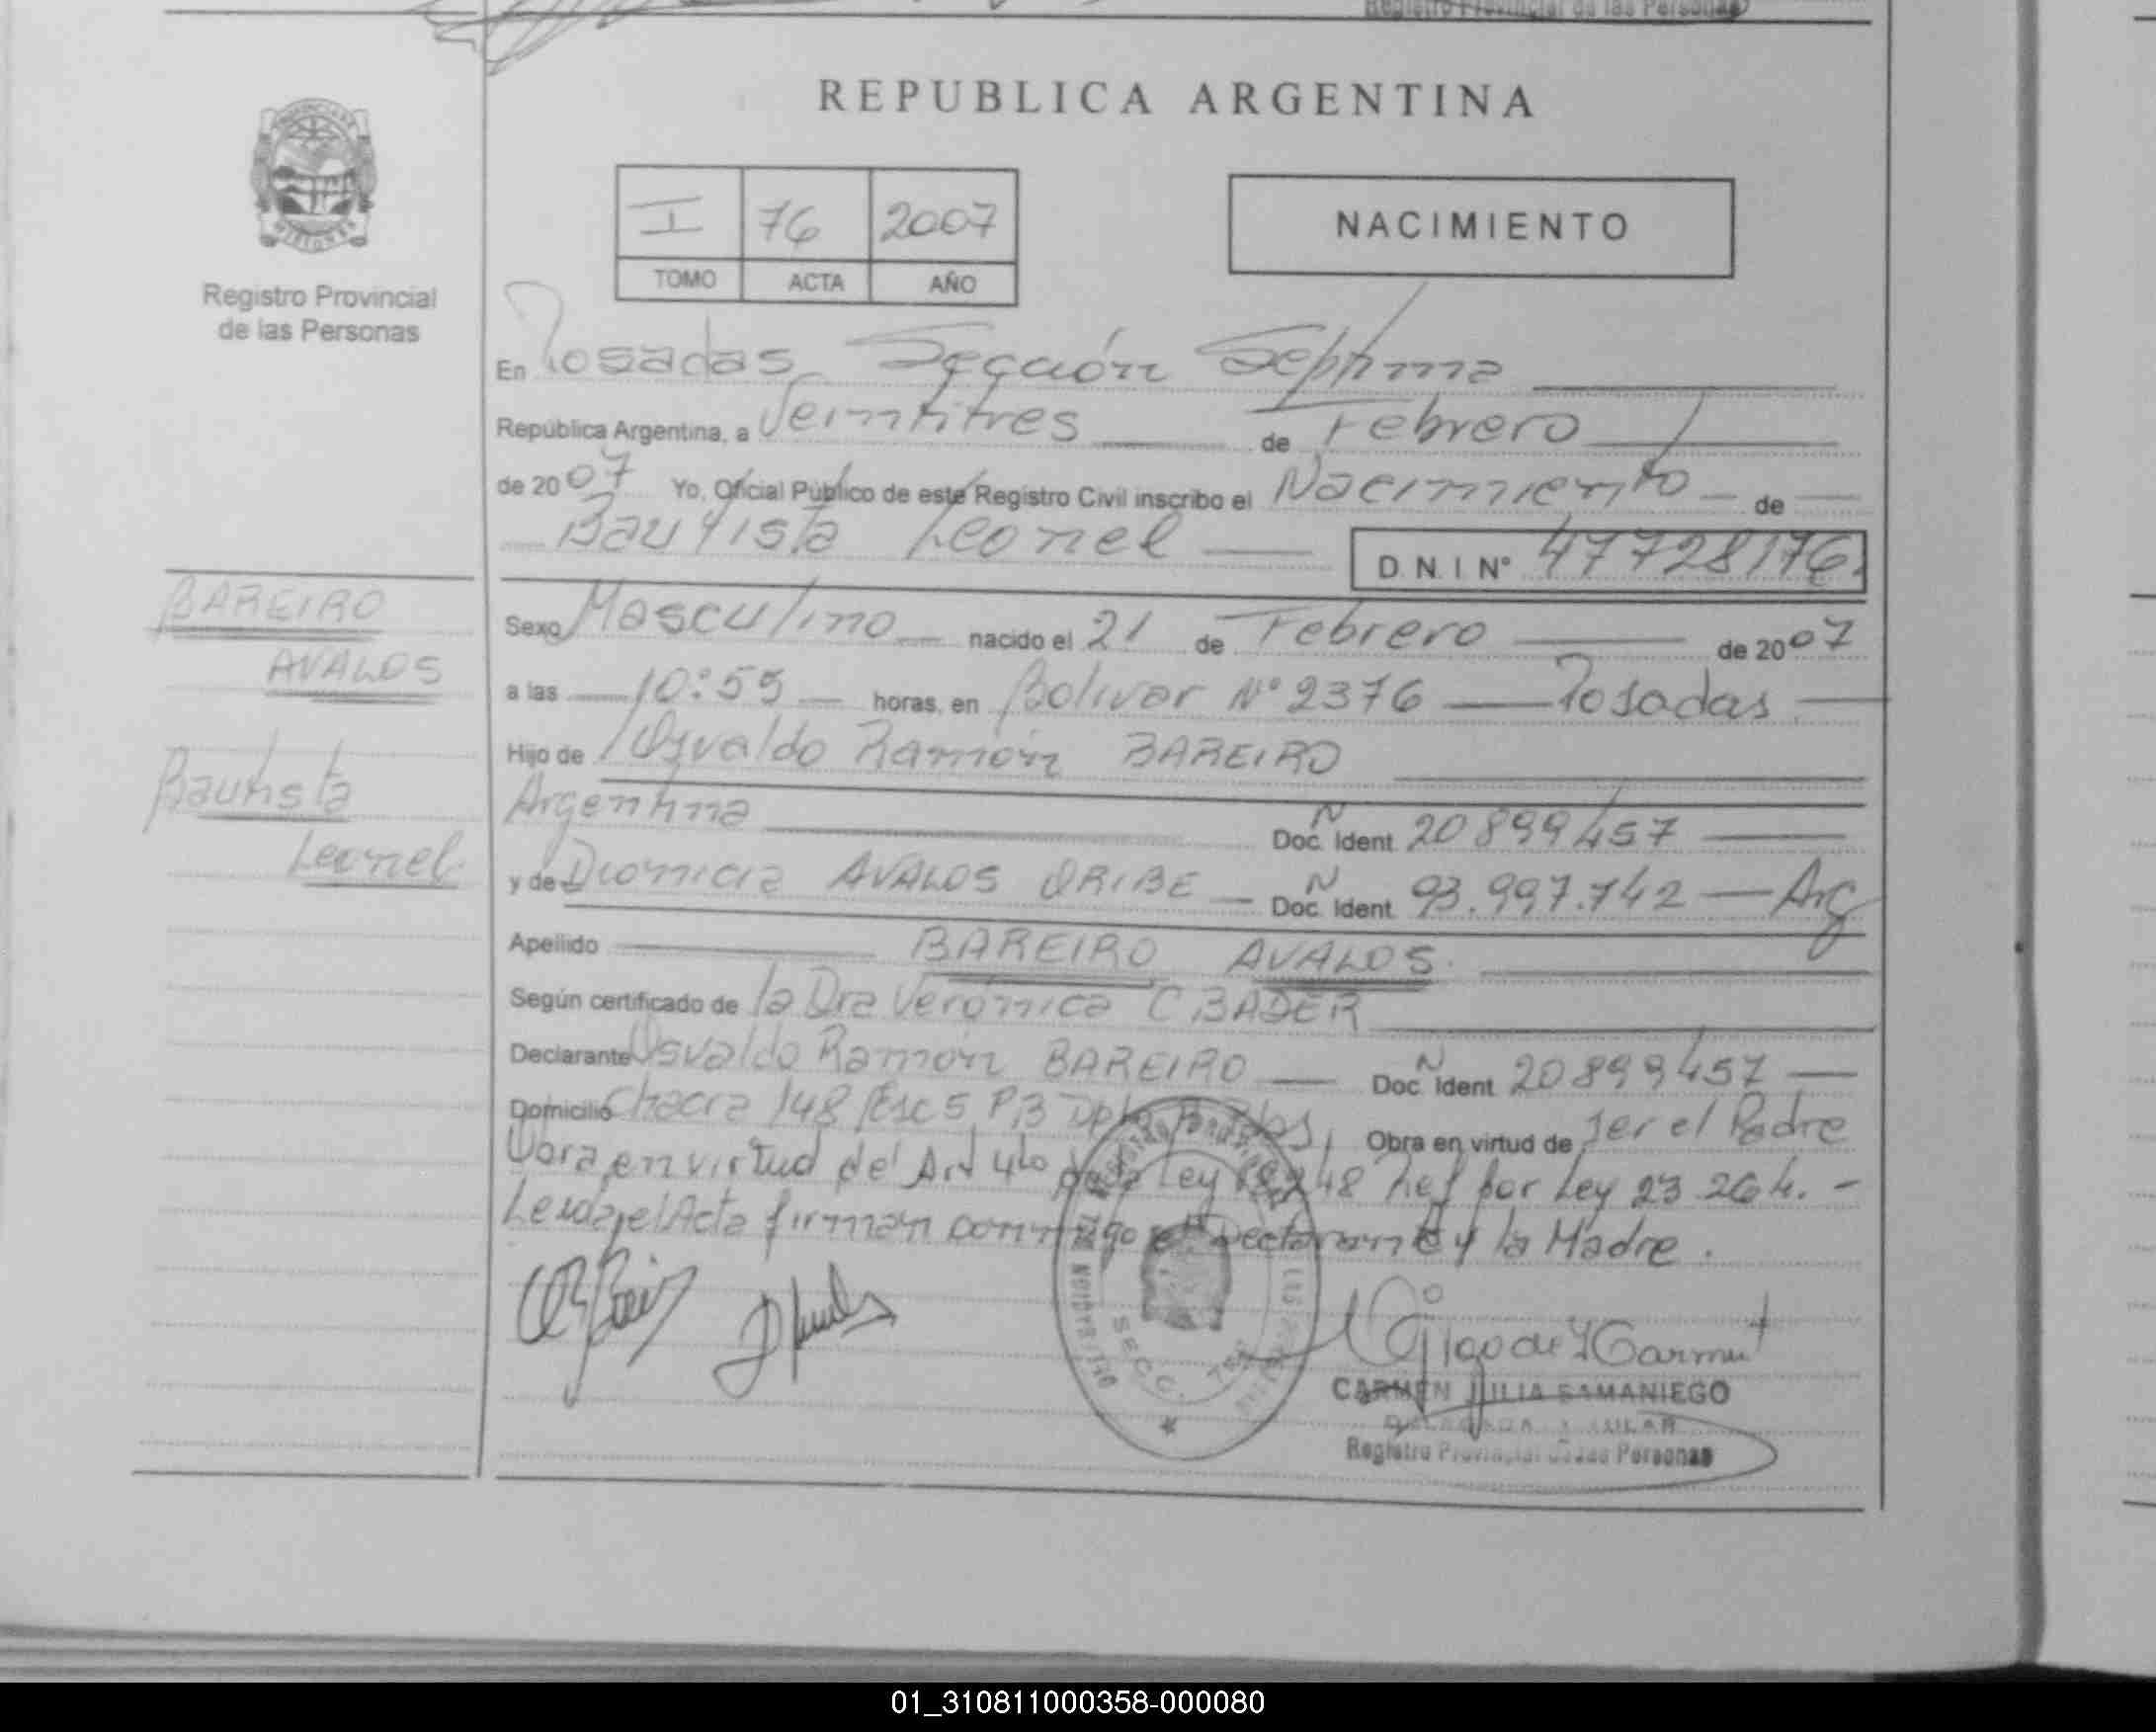 Registro Provincial de las Personas
REPUBLICA ARGENTINA
I 76 2007
TOMO ACTA AÑO
NACIMIENTO
Registro Provincial
de las Personas
En Posadas Sección Septima
República Argentina, a Veintitres de Febrero
de 2007 Yo, Oficial Público de este Registro Civil inscribo el Nacimiento de
Bautista Leonel D.N.I Nº 47728176
BAREIRO
AVALOS
Bautista
Leonel
Sexo Masculino nacido el 21 de Febrero de 2007
a las 10:55 horas, en Bolivar Nº 2376 Posadas
Hijo de Osvaldo Ramón BAREIRO
Argentina Doc. N Ident. 20899457
y de Dionicia AVALOS ORIBE Doc. N Ident. 93.997.742 Arg
Apellido BAREIRO AVALOS.
Según certificado de la Dra Verónica C BADER
Declarante Osvaldo Ramón BAREIRO Doc. N Ident. 20899457
Domicilio Chacra 148 Esc 5 PB Dpto Obra en virtud de ser el Padre
Obra en virtud del Art 4to Ley 18248 Ref por Ley 23.264. -
Leida el Acta firman conmigo el Declarante y la Madre.
SECC. 7
CARMEN JULIA SAMANIEGO
Registro Provincial de las Personas
01_310811000358-000080